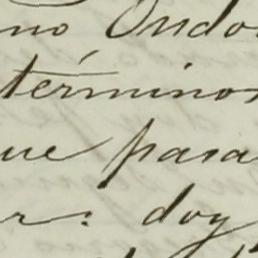 no Ondo
términos
ue pasa
r: doy